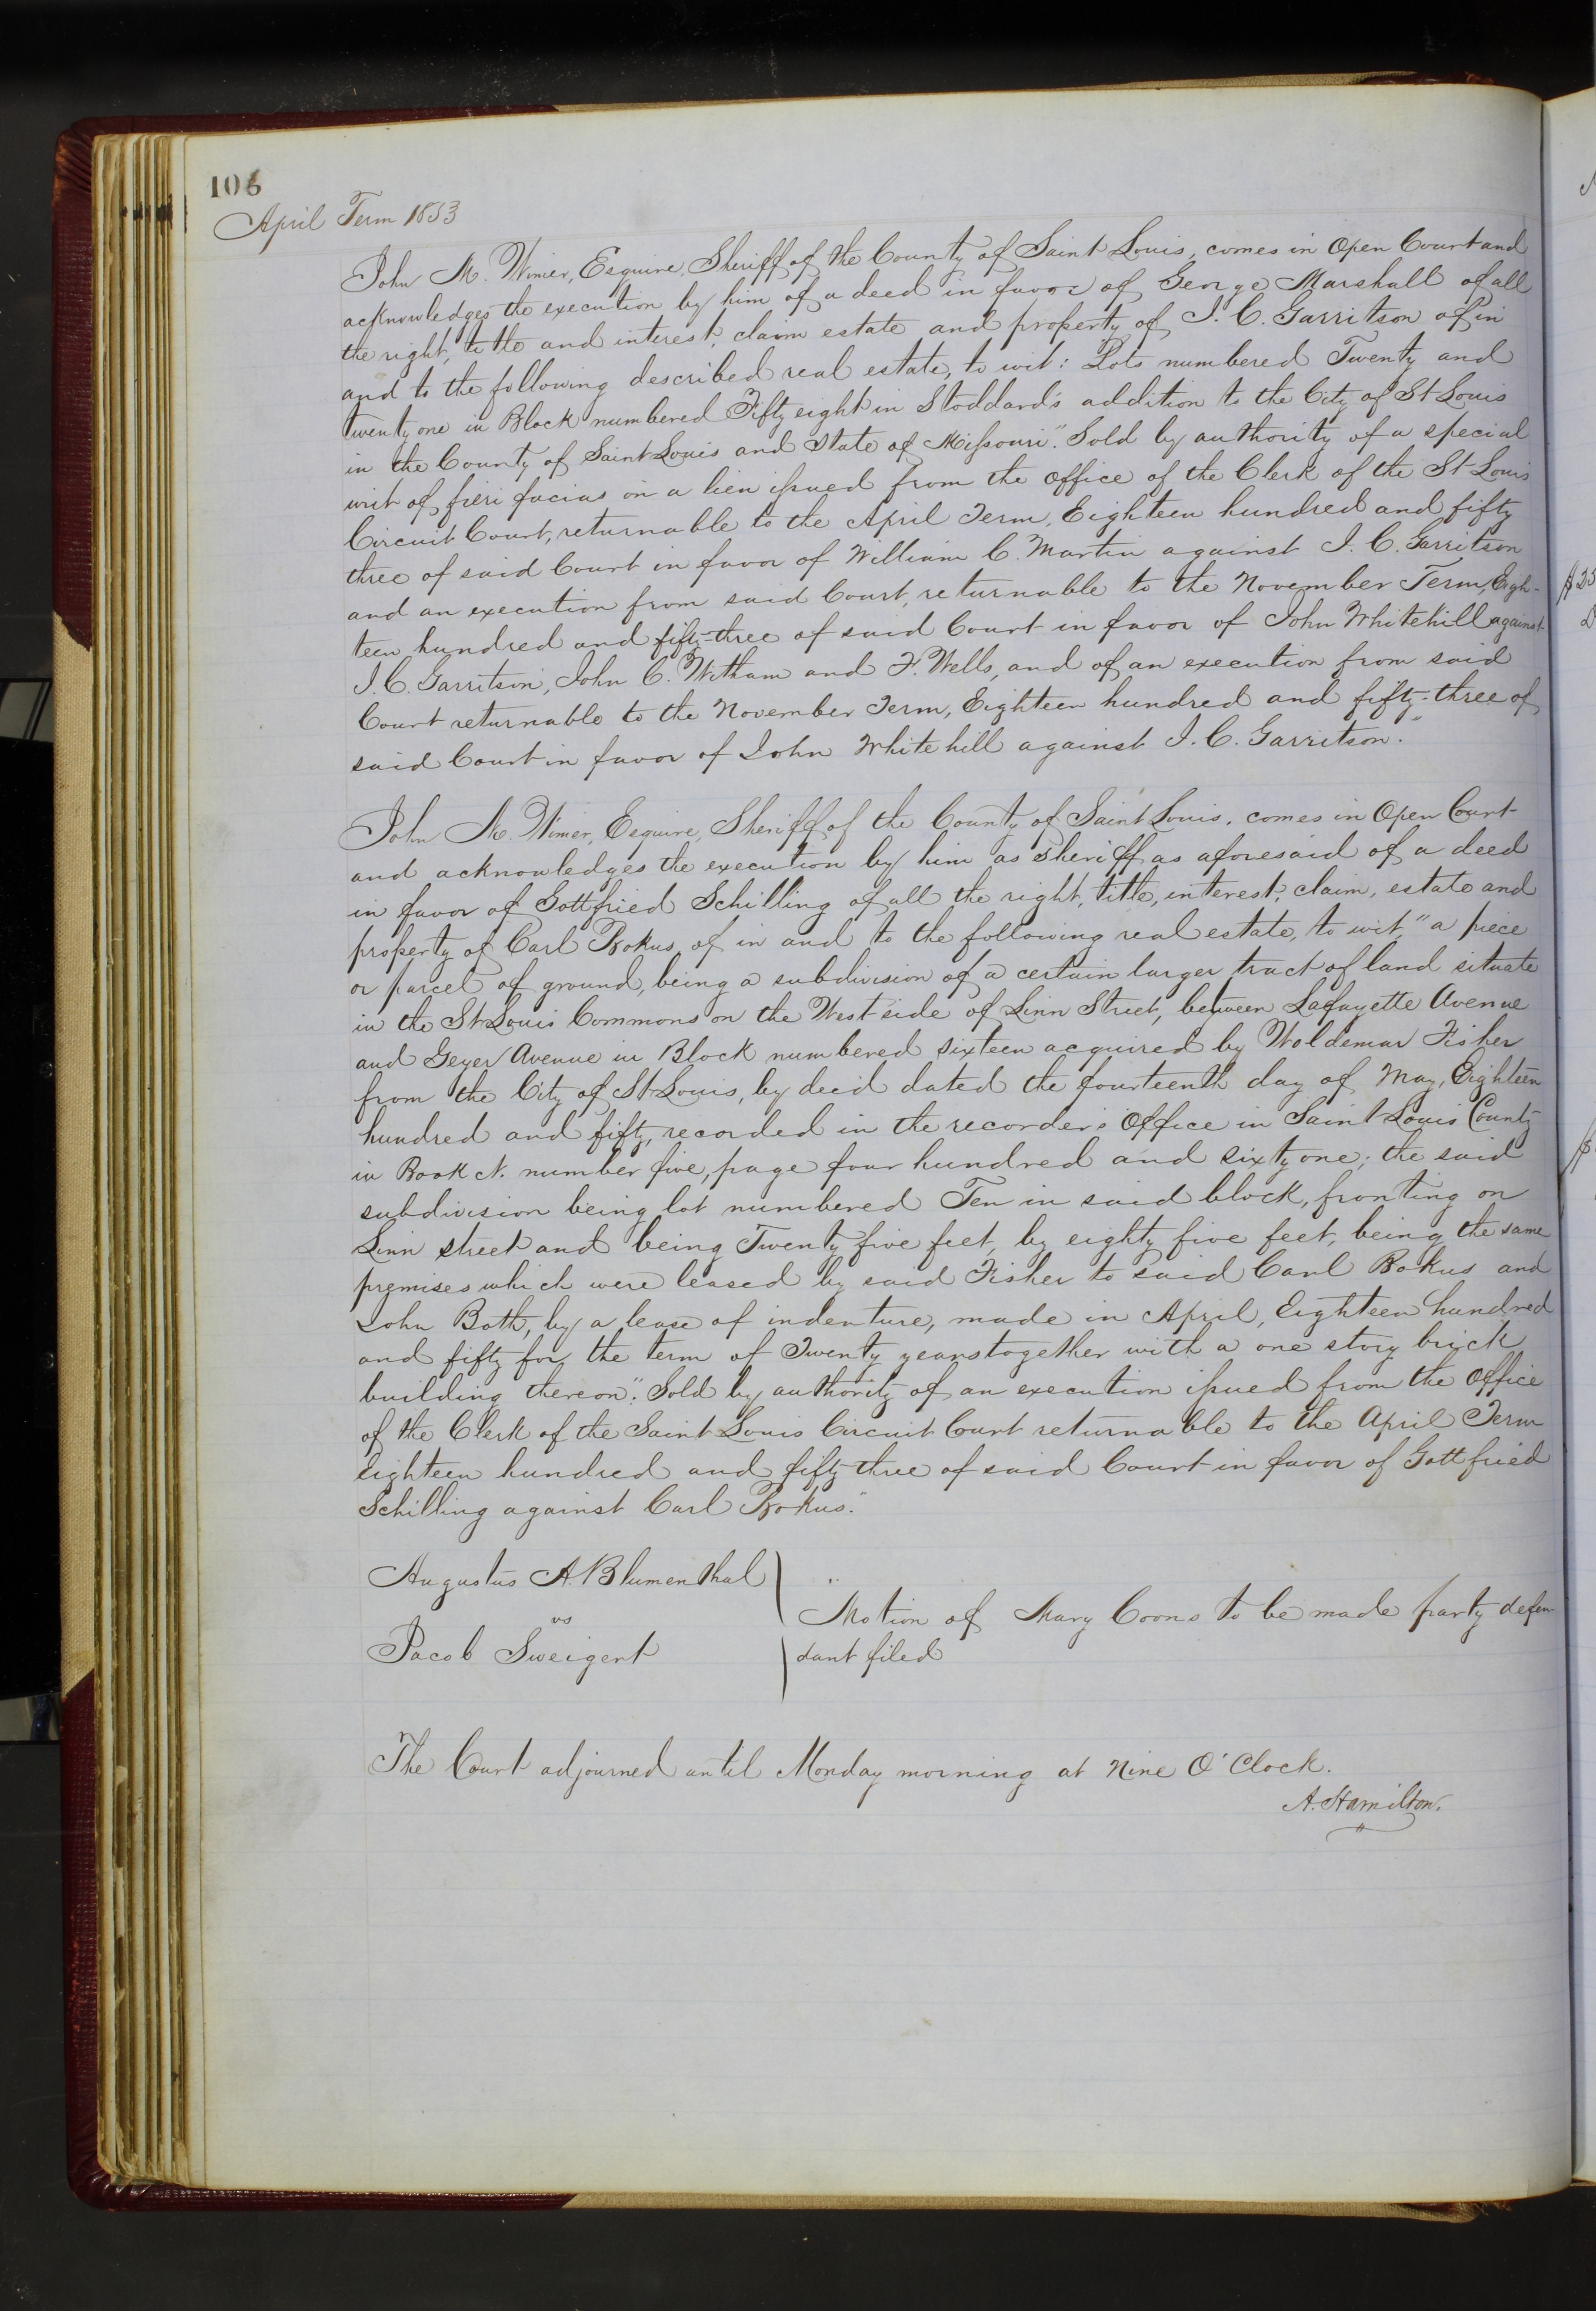 106
April Term 1853
John M. Wimer, Esquire, Sheriff of the County of Saint Louis, comes in Open Court and
acknowledges the execution by him of a deed in favor of George Marshall of all
the right, title and interest, claim estate and property of I. C. Garritson of in
and to the following described real estate, to wit: Lots numbered Twenty and
Twenty one in Block numbered Fifty eight in Stoddard's addition to the City of St Louis
in the County of Saint Louis and State of Missouri." Sold by authority of a special
writ of fieri facias on a lien issued from the office of the Clerk of the St Louis
Circuit Court, returnable to the April Term, Eighteen hundred and fifty
three of said Court in favor of William C. Martin against I. C. Garritson
and an execution from said Court, returnable to the November Term, Eigh-
teen hundred and fifty-three of said Court in favor of John Whitehill against
I. C. Garritson, John C. Witham and F. Wells, and of an execution from said
Court returnable to the November Term, Eighteen hundred and fifty-three of
said Court in favor of John Whitehill against I. C. Garritson."
John M. Wimer, Esquire, Sheriff of the County of Saint Louis, comes in Open Court
and acknowledges the execution by him as sheriff as aforesaid of a deed
in favor of Gottfried Schilling of all the right, title, interest, claim, estate and
property of Carl Bokus, of in and to the following real estate, to wit, "a piece
or parcel of ground, being a subdivision of a certain larger tract of land situate
in the St Louis Commons on the West side of Linn Street, between Lafayette Avenue
and Geyer Avenue in Block numbered sixteen acquired by Woldemar Fisher
from the City of St Louis, by deed dated the fourteenth day of May, Eighteen
hundred and fifty, recorded in the recorder's Office in Saint Louis County
in Book N. number five, page four hundred and sixty one; the said
subdivision being lot numbered Ten in said block, fronting on
Linn street and being Twenty five feet, by eighty five feet, being the same
premises which were leased by said Fisher to said Carl Bokus and
John Both, by a lease of indenture, made in April, Eighteen hundred
and fifty for the term of Twenty years together with a one story brick
building thereon". Sold by authority of an execution issued from the Office
of the Clerk of the Saint Louis Circuit Court returnable to the April Term
eighteen hundred and fifty three of said Court in favor of Gottfried
Schilling against Carl Bokus."
Augustus A. Blumenthal
vs
Jacob Sweigert
Motion of Mary Coons to be made party defen
dant filed
The Court adjourned until Monday morning at Nine O'Clock.
A. Hamilton.